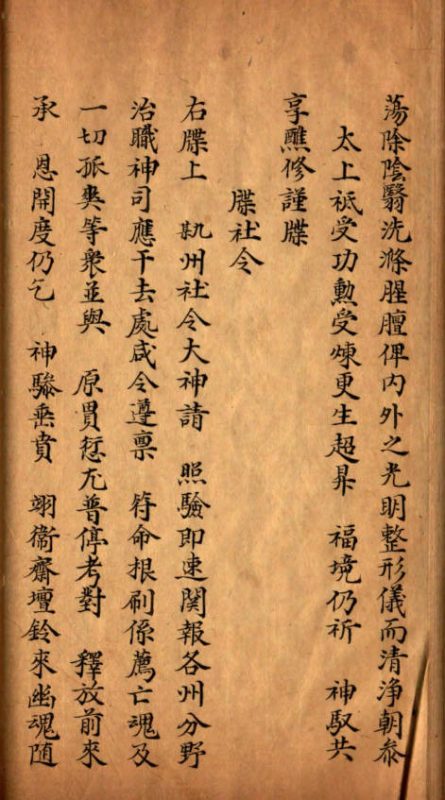 蕩除陰翳洗滌腥膻俾内外之光明整形儀而清淨朝叅
太上祇受功勳受煉更生超昇　福境仍祈　神馭共
享醮修謹牒
牒社令
右牒上　䢴州社令大神請　照驗即速関報各州分野
治職神司應干去處咸令遵禀　符命根刷係薦亡魂及
一切孤䰟等衆並與　原貫愆尤普停考對　釋放前來
承　恩開度仍乞　神驂垂賁　翊衛齋壇鈐來幽魂随